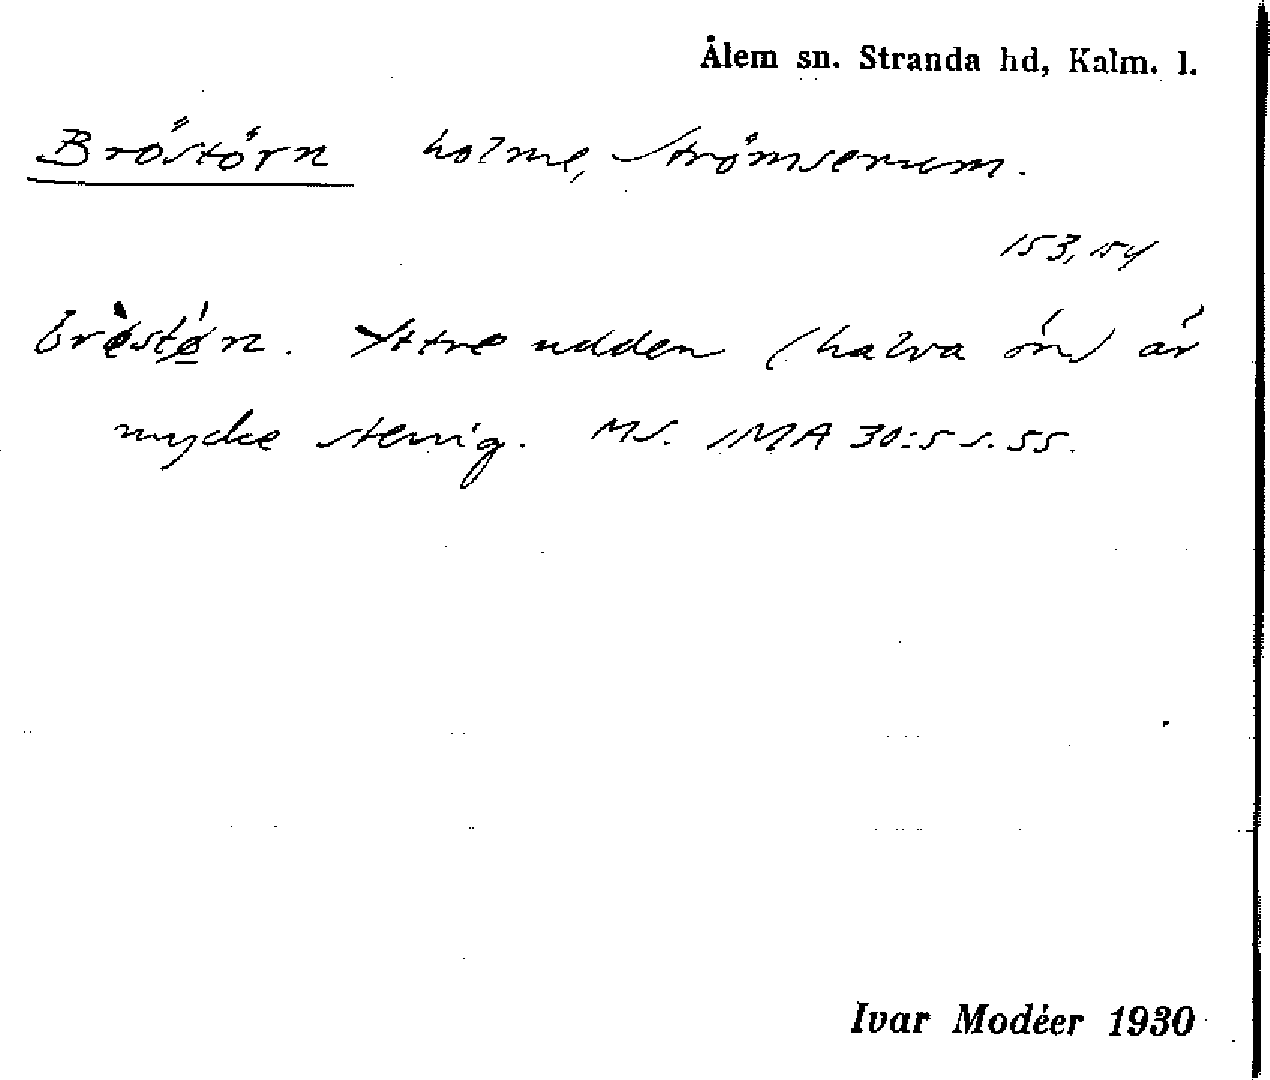 Ålem sn. Stranda hd, Kalm. l.
Bröstörn holme, Strömserum.
153, 154
brø̀stǿn. Yttre udden (halva ön) är
mycke stenig. MS. IMA 30:5 s. 55.
Ivar Modéer 1930